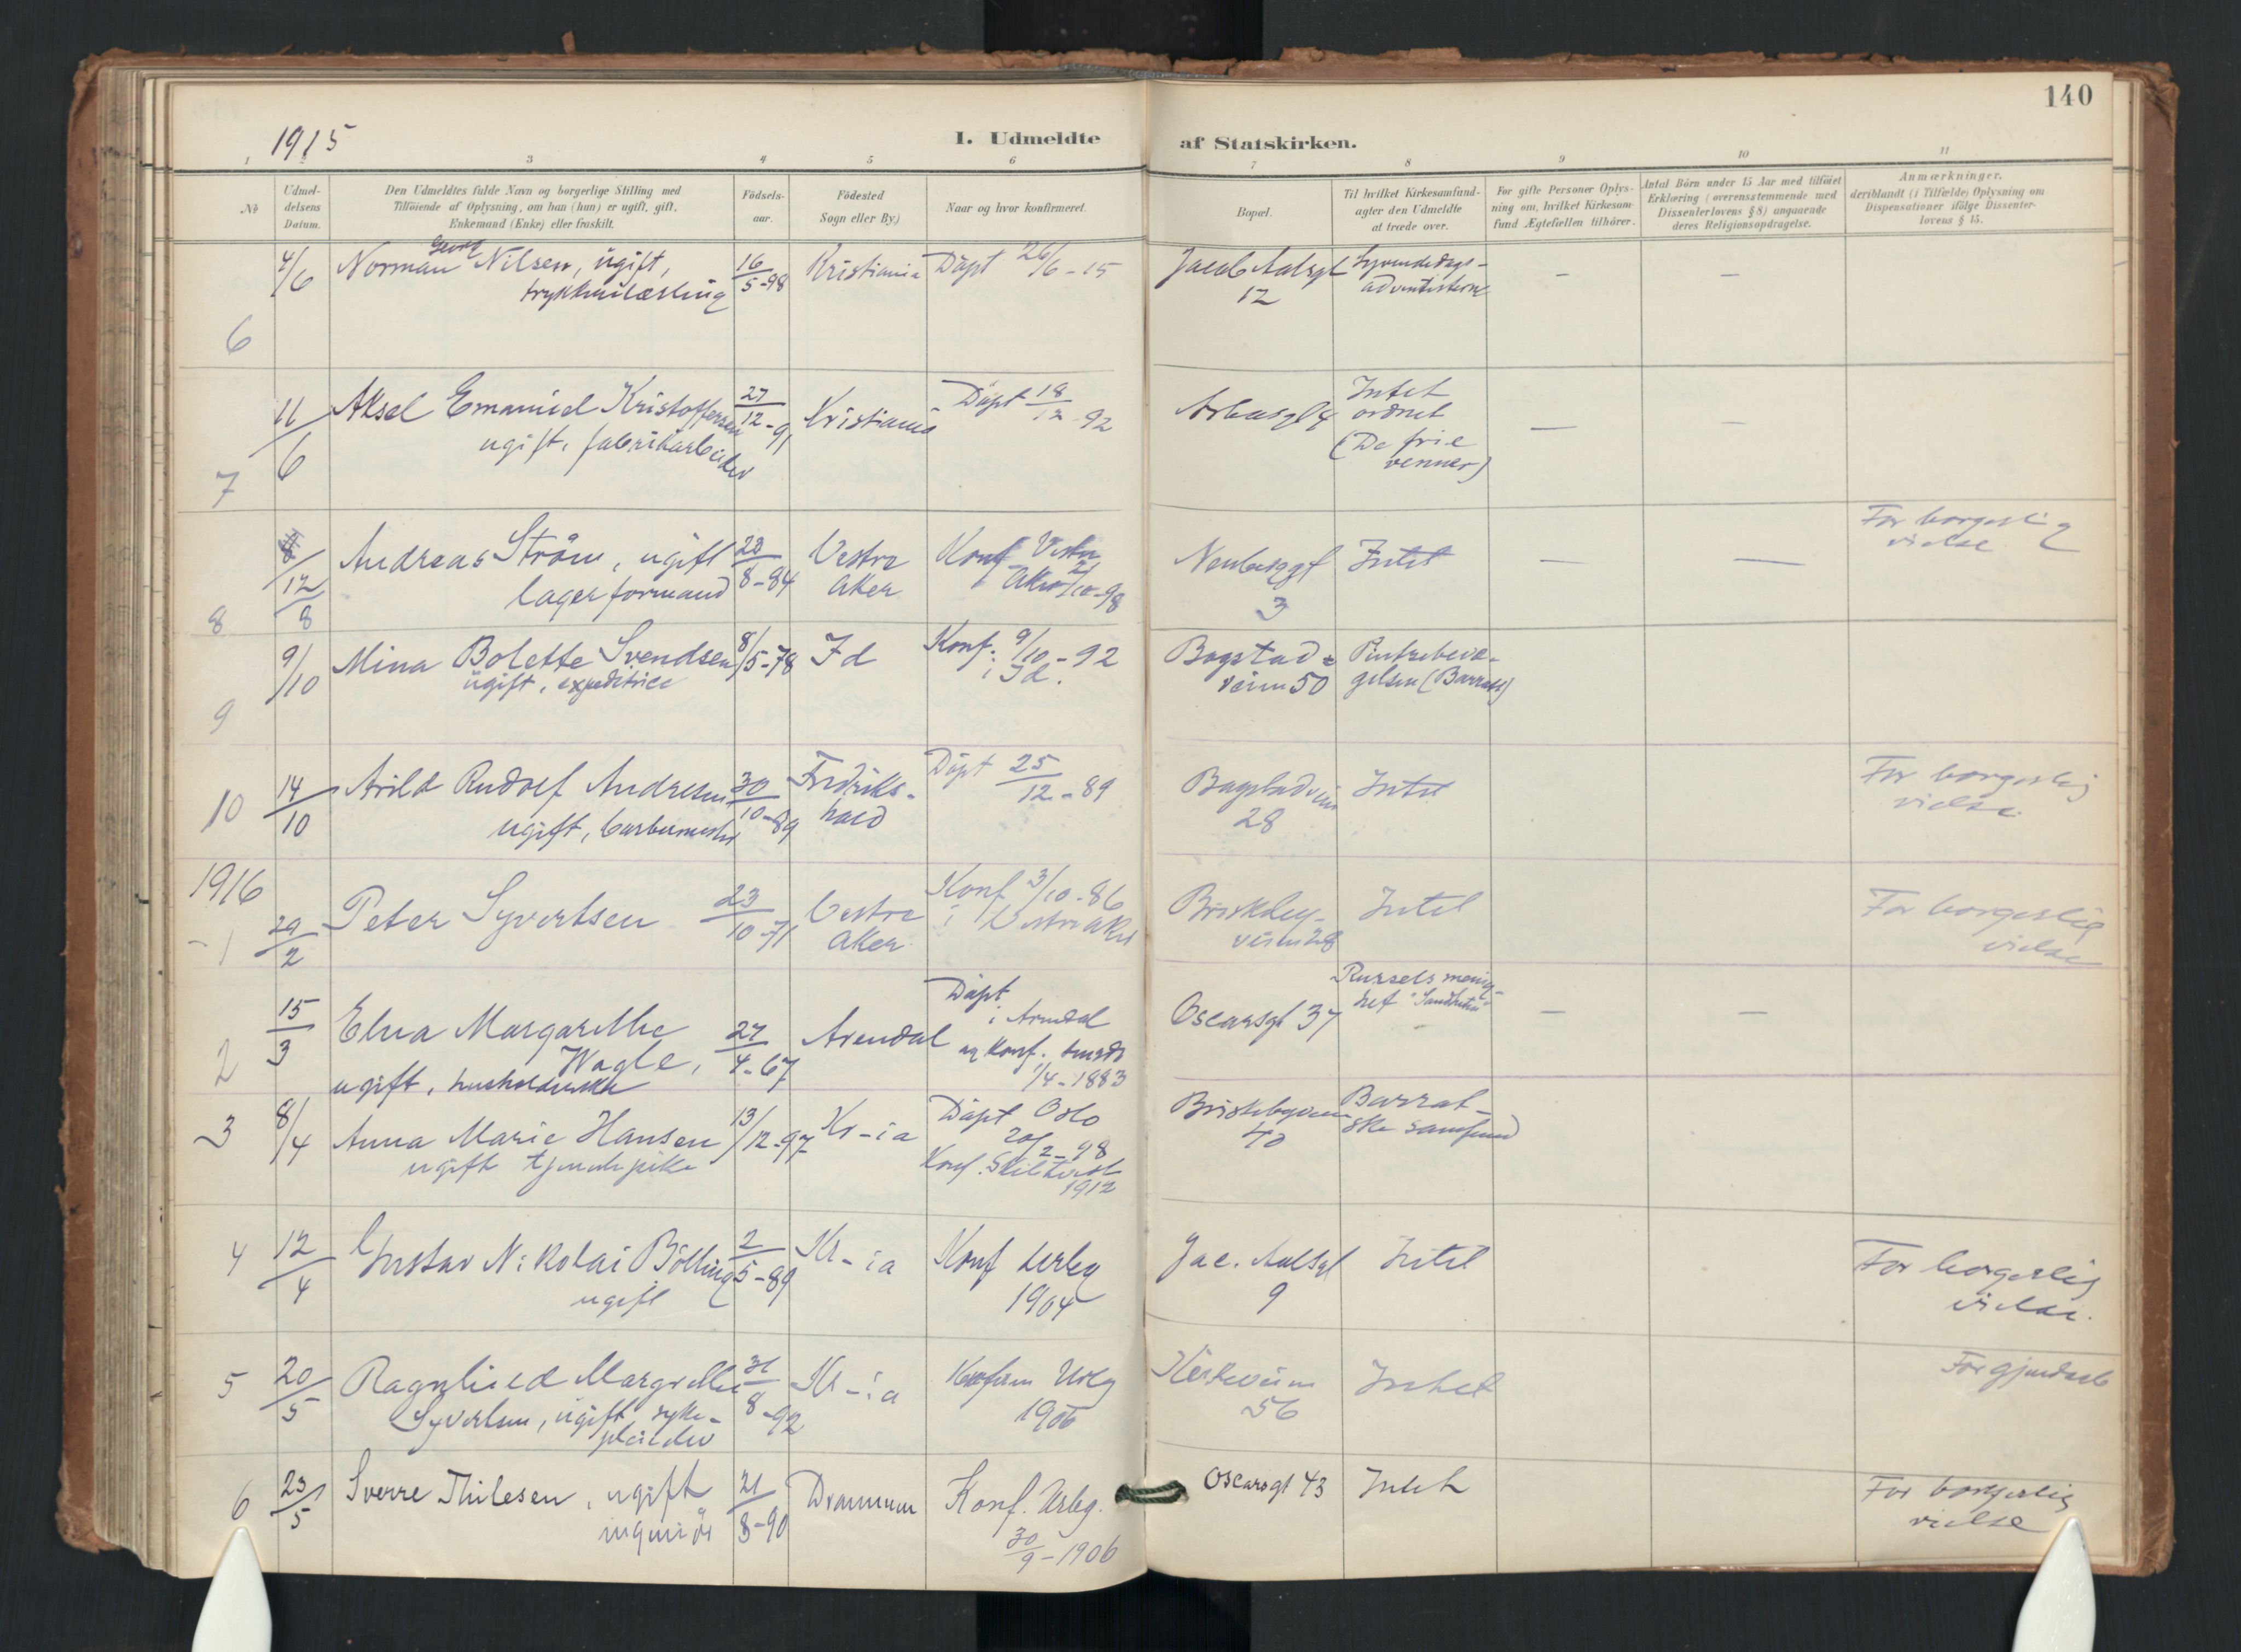 140
1915
1. Udmeldte af Statskirken.
1 3 4 5 6 7 8 9 10 11
№
Udmel-
delsens
Datum.
Den Udmeldtes fulde Navn og borgerlige Stilling med
Tilföiende af Oplysning, om han (hun) er ugift, gift,
Enkemand (Enke) eller fraskilt.
Födsels-
aar.
Födested
Sogn eller By.)
Naar og hvor konfirmeret.
Bopæl.
Til hvilket Kirkesamfund-
agter den Udmeldte
at træde over.
For gifte Personer Oplys-
ning om, hvilket Kirkesam-
fund Ægtefællen tilhörer.
Antal Börn under 15 Aar med tilföiet
Erklæring (overensstemmende med
Dissenterlovens § 8) angaaende
deres Religionsopdragelse.
Anmærkninger.
deriblandt (i Tilfælde) Oplysning om
Dispensationer ifölge Dissenter-
lovens § 15.
6
4/6
Georg
Norman Nilsen, ugift,
16/5-98
Kristiania
Döpt 26/6-15
Jacob Aalsgt
12
Syvendedags-
adventisterne
—
—
7
11/6
Aksel Emanuel Kristoffersen
ugift, fabrikarbeider
27/12-91
Kristiania
Döpt 18/12-92
4
Intet
ordnet
(De frie
venner)
—
—
8
12/8
Andreas Ström, ugift
lagerformand
28/8-84
Vestre
Aker
Konf. Vestre
Aker 2/10-98
Neubergt
3
Intet
—
—
For borgerlig
vielse
9
9/10
Mina Bolette Svendsen
ugift, expeditrice
8/5-78
Id
Konf. 9/10-92
i Id.
Bogstad-
veien 50
Pintsebevæ-
gelsen (Barratt)
10
14/10
Arild Rudolf Andresen
ugift, barbermester
30/10-89
Fredriks-
hald
Döpt 25/12-89
Bogstadveien
28
Intet
For borgerlig
vielse.
1916
1
29/2
Peter Syvertsen
23/10-71
Vestre
Aker
Konf 3/10-86
i Vestre Aker
Briskeby-
veien 28
Intet
For borgerlig
vielse
2
15/3
Elna Margarethe
Wagle,
ugift, husholderske
27/4-67
Arendal
Döpt
i Arendal
og konf. smsts
1/4-1883
Oscarsgt 37
Russels menig-
het "Sandheten"
—
—
3
8/4
Anna Marie Hansen
ugift tjenestepike
13/12-97
Kr-ia
Döpt Oslo
20/2-98
Konf.
1912
Briskebyveien
40
Barrat-
ske samfund
4
12/4
Gustav Nikolai Bölling
ugift
2/5-89
Kr-ia
Konf Urbg
1904
Jac. Aalsgt
9
Intet
For borgerlig
vielse.
5
20/5
Ragnhild Margrethe
Syvertsen, ugift, syke-
pleierske
31/8-92
Kr-ia
Konfirm Urbg
1906
Kirkeveien
56
Intet
For gjendaab
6
23/5
Sverre Thilesen, ugift
ingeniör
21/8-90
Drammen
Konf. Urbg.
30/9-1906
Oscarsgt 43
Intet
For borgerlig
vielse